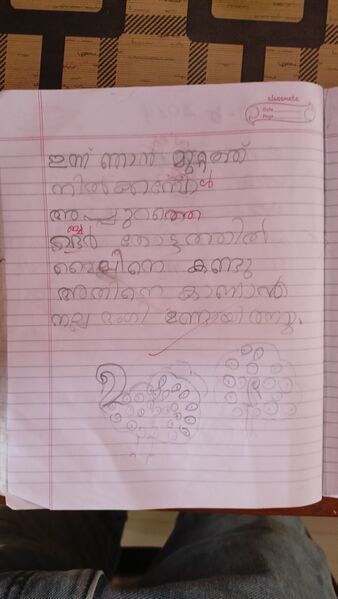 classmate
Date
Page
ഇന്ന് ഞാൻ മുറ്റത്ത്
നിൽക്കുമ്പോൾ
അപ്പുറത്തെ
റബ്ബർ തോട്ടത്തിൽ
മൈലിനെ കണ്ടു
അതിനെ കാണാൻ
നല്ല ഭംഗി ഉണ്ടായിരുന്നു.